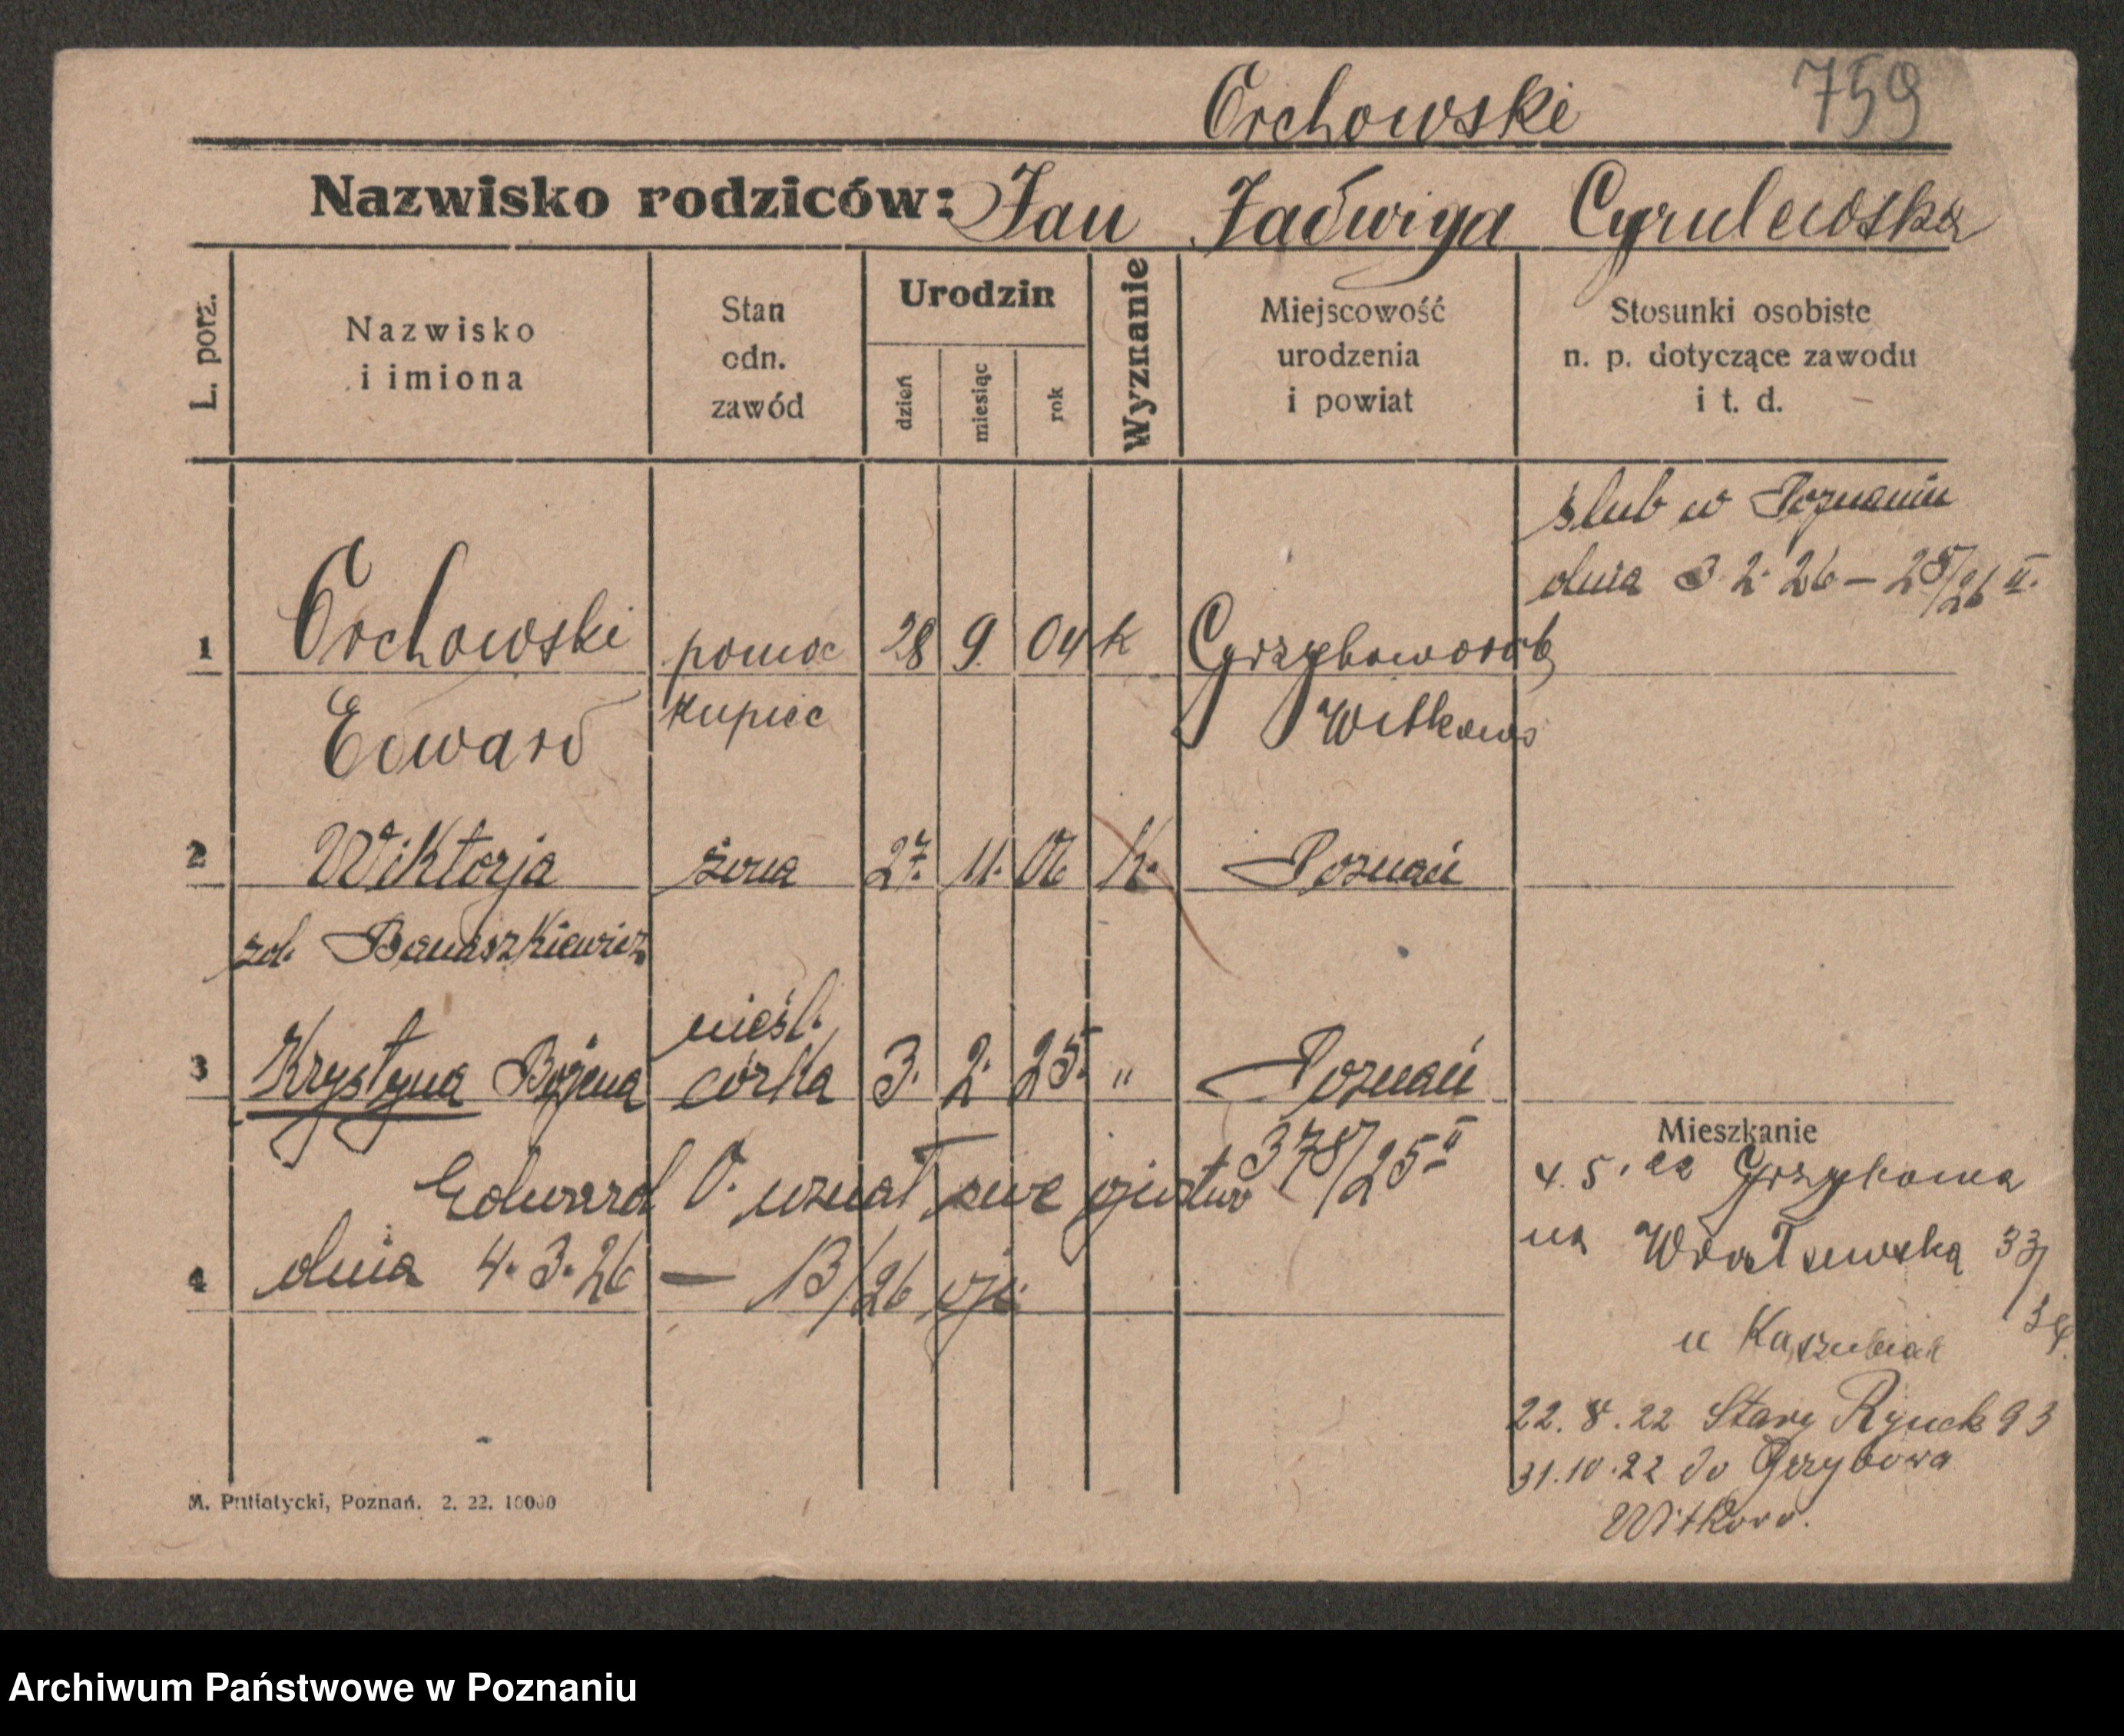 Orchowski 759
Nazwisko rodziców: Jan Jadwiga Cyrulewska
L. porz.
Nazwisko
i imiona
Stan
odn.
zawód
Urodzin
dzień
miesiąc
rok
Wyznanie
Miejscowość
urodzenia
i powiat
Stosunki osobiste
n. p. dotyczące zawodu
i t. d.
ślub w Poznaniu
dnia 3.2.26 — 25/26 II.
1 Orchowski pomoc 28 9. 04 k
Edward kupiec Witkowo
2 Wiktorja żona 27. 11. 06 k. Poznań
zd. Banaszkiewicz
nieśl.
3 Krystyna Bożena córka 3. 2. 25. " Poznań
378/25 II
Edward O. uznał swe ojcostwo
4 dnia 4.3.26 — 13/26
Mieszkanie
4.5.22 Grzybowa
na Wrocławska 33/34
u Kaszubiak
22.8.22 Stary Rynek 93
31.10.22 do Grzybowa
Witkowo.
M. Putiatycki, Poznań. 2. 22. 10000
Archiwum Państwowe w Poznaniu